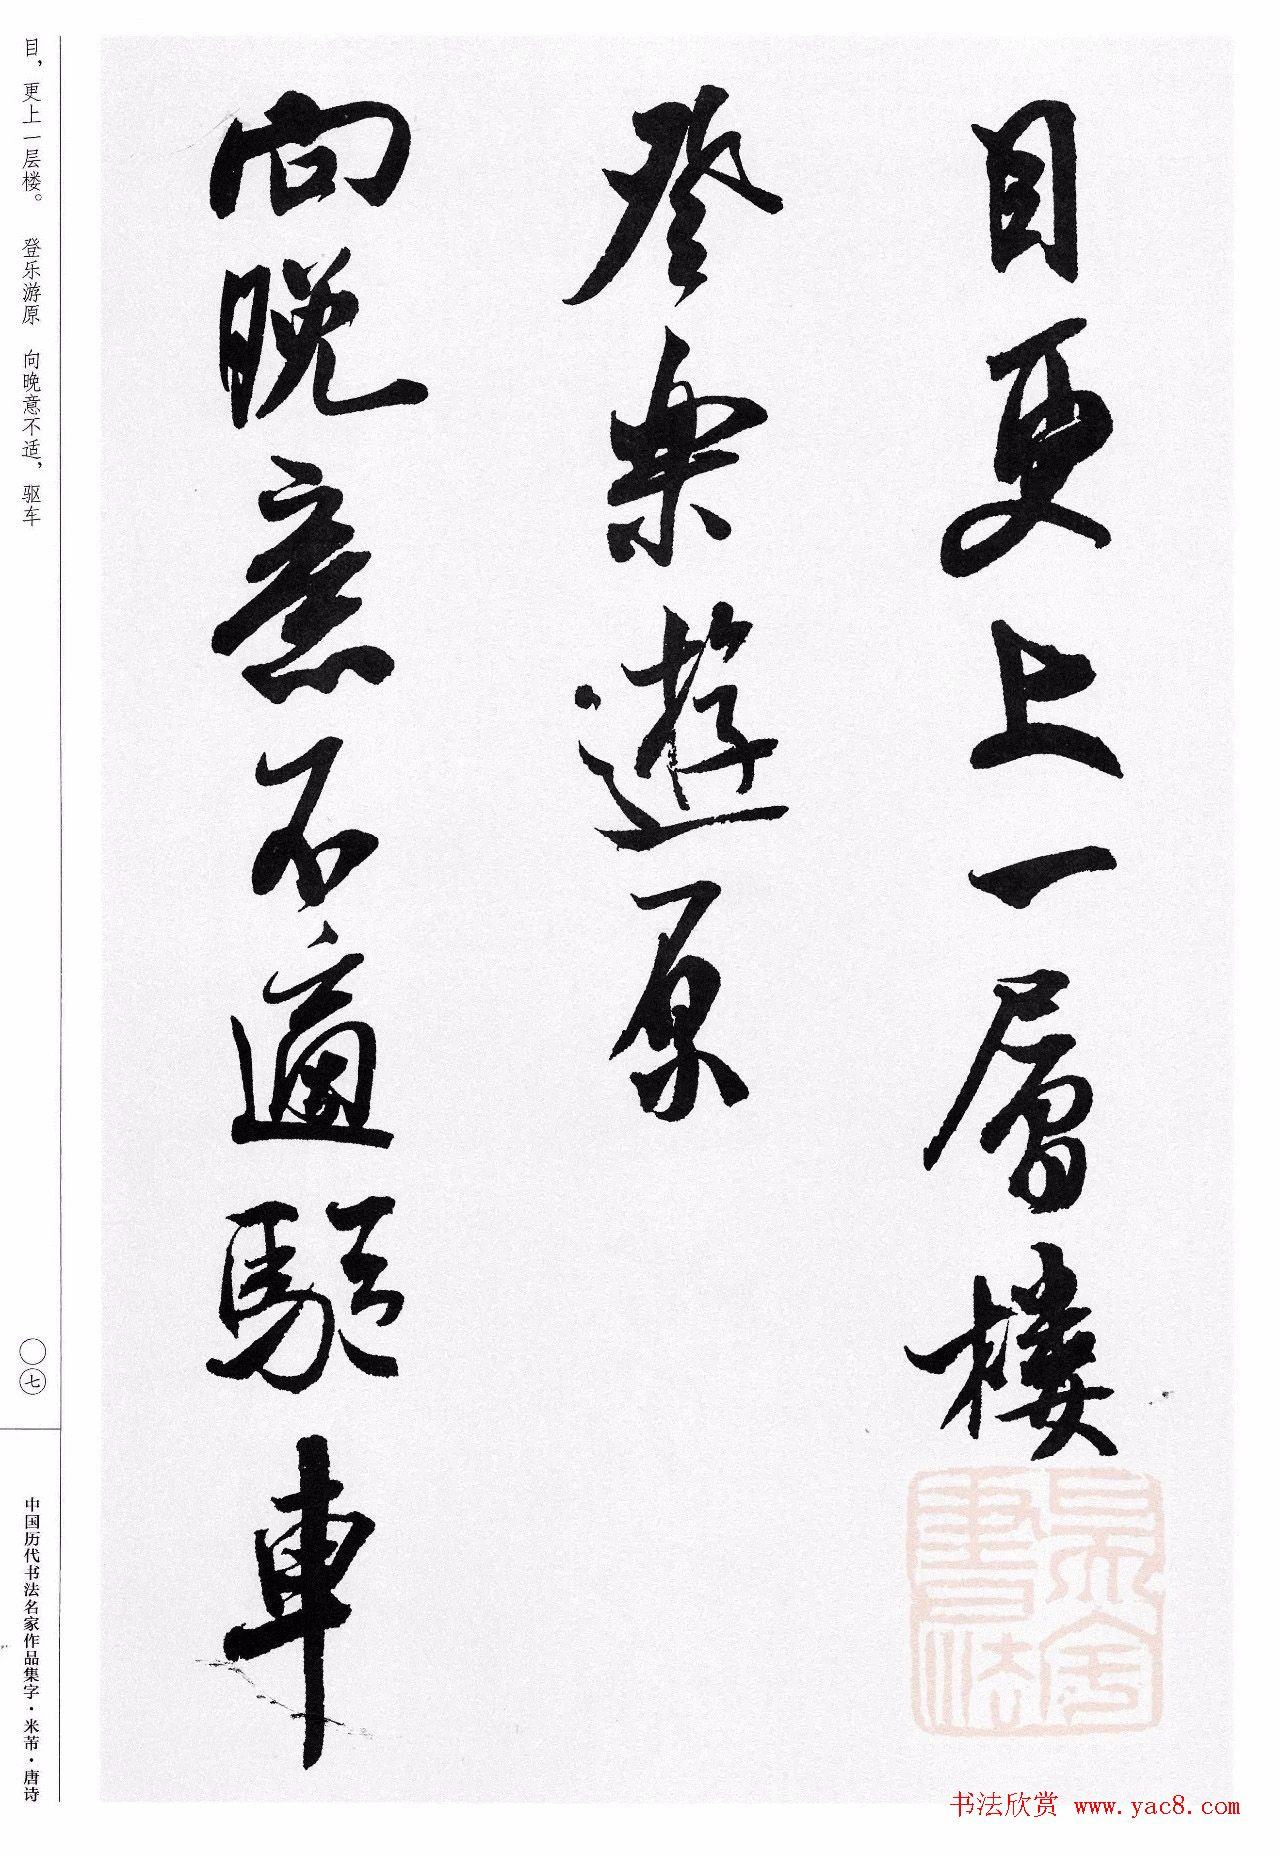 目更上一層樓
登樂遊原
向晚意不適驅車
目，更上一层楼。 登乐游原 向晚意不适，驱车
〇七
中国历代书法名家作品集字·米芾·唐诗
书法欣赏 www.yac8.com